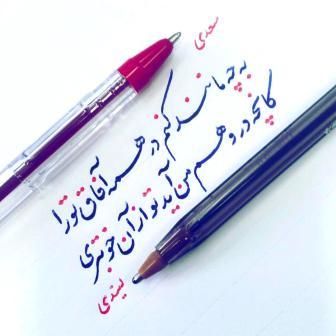 سعدی
به چه مانند کنم در همه آفاق تو را
کانچه در وهم من آید تو از آن خوبتری